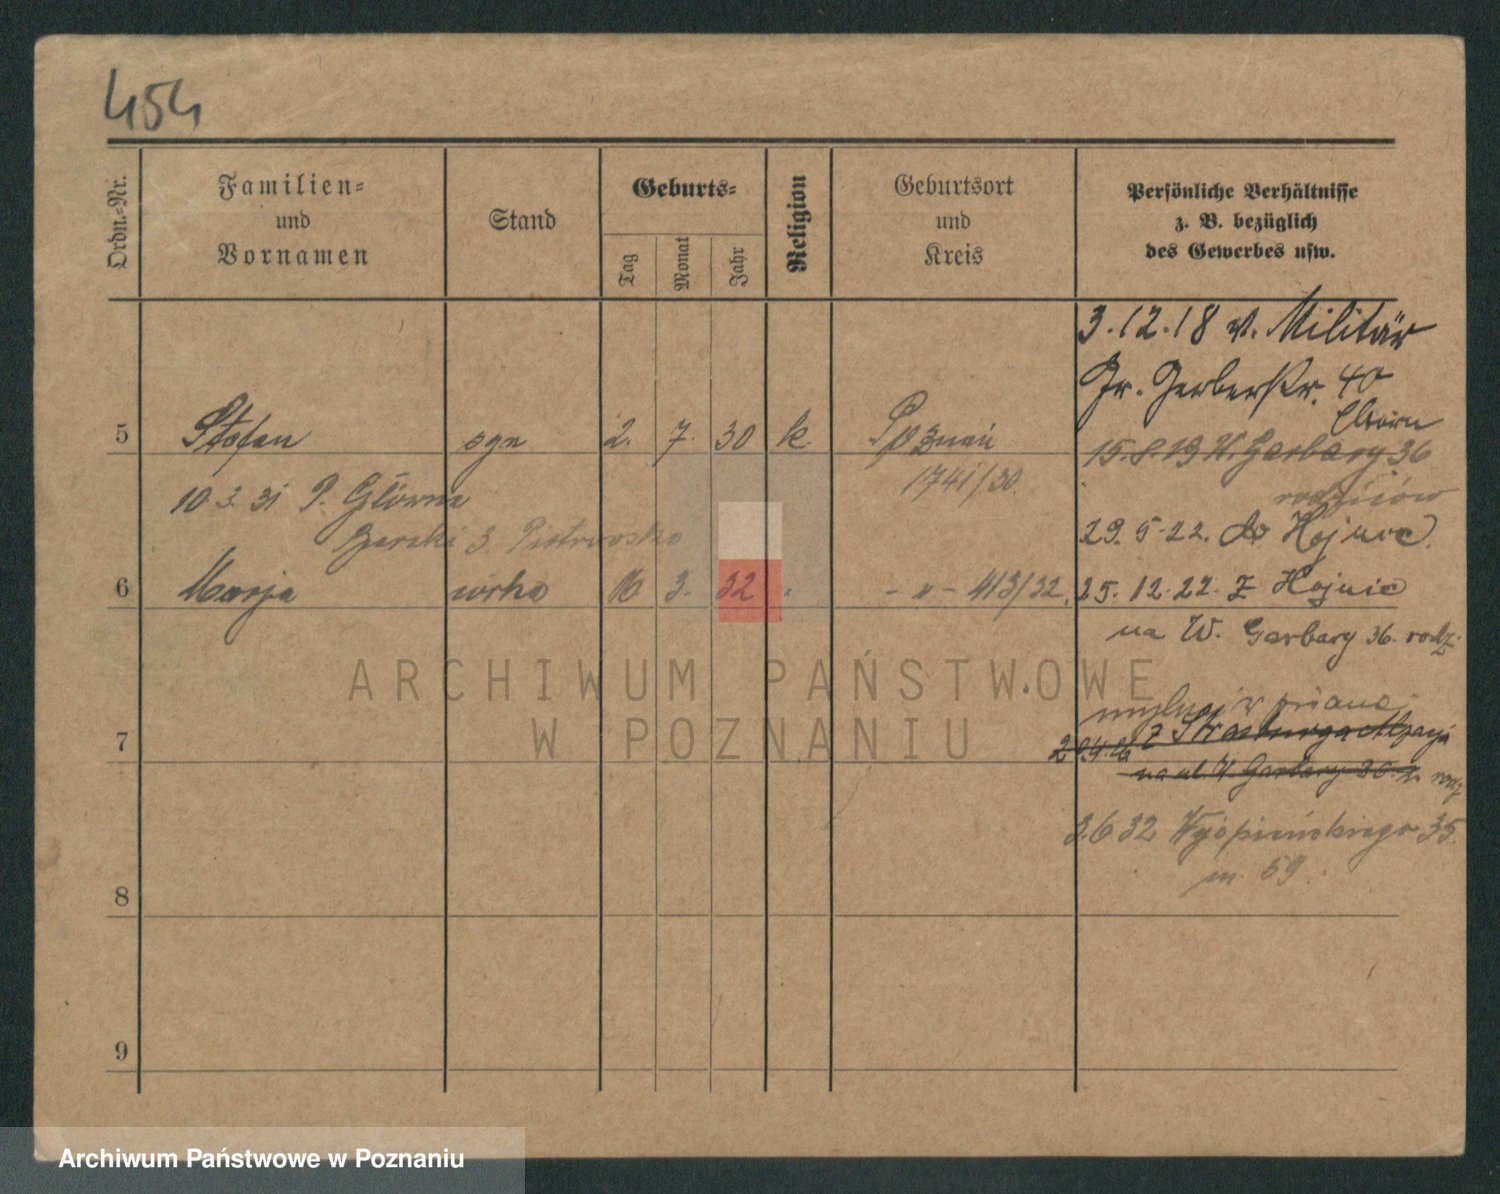 454
Ordn.-Nr.
Familien-
und
Vornamen
Stand
Geburts-
Tag
Monat
Jahr
Religion
Geburtsort
und
Kreis
Persönliche Verhältnisse
z. B. bezüglich
des Gewerbes usw.
3.12.18 v. Militär
Gr. Gerberstr. 40
Eltern
5 Stefan syn 2. 7. 30 k. Poznań
15.8.19 W. Garbary 36
1741/30.
rodziców
10.3.31 P. Główna
29.5.22. do Chojnic
3. Piotrowsko
6 Marja córka 16 3. 32 " - " - 413/32.
25.12.22. z Chojnic
na W. Garbary 36. rodz.
mylnie w pisano
7
z Strasburga Alzacja
na ul. W. Garbary 36
3.6.32 Wyspiańskiego 35
m. 59.
8
9
ARCHIWUM PAŃSTWOWE
W POZNANIU
Archiwum Państwowe w Poznaniu